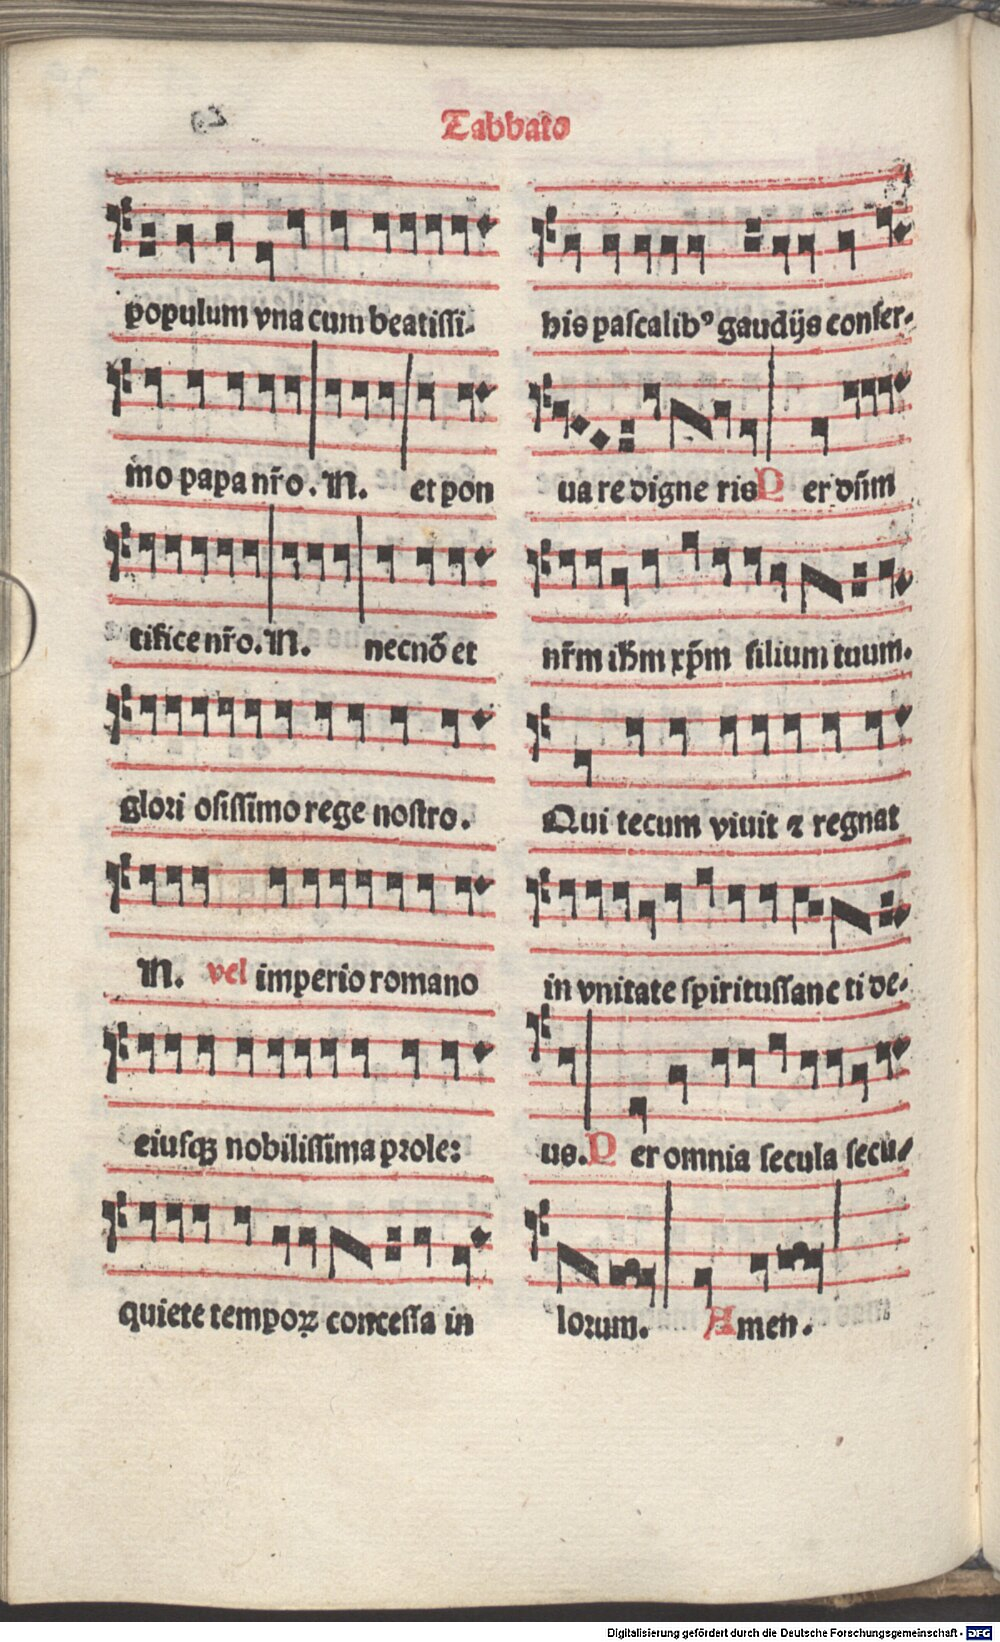 Sabbato
populum vna cum beatissi-
mo papa nr̄o. N. et pon
tifice nr̄o. N. necnō et
glori osissimo rege nostro.
N. vel imperio romano
eiusqꝫ nobilissima prole:
quiete tempoꝝ concessa in
his pascalibꝰ gaudijs conser-
ua re digne ris P er dn̄m
nr̄m ih̄m xp̄m filium tuum.
Qui tecum viuit ⁊ regnat
in vnitate spiritussanc ti de-
us. P er omnia secula secu-
lorum. Amen.
Digitalisierung gefördert durch die Deutsche Forschungsgemeinschaft - DFG